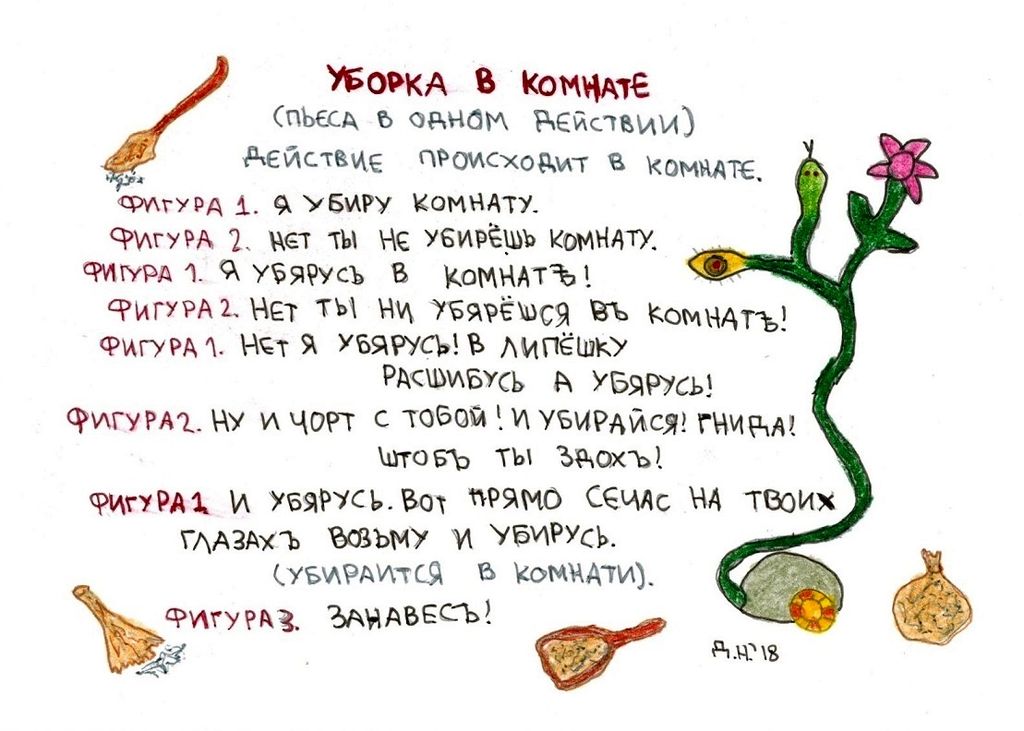 УБОРКА В КОМНАТЕ
(ПЬЕСА В ОДНОМ ДЕЙСТВИИ)
ДЕЙСТВИЕ ПРОИСХОДИТ В КОМНАТЕ.
ФИГУРА 1. Я УБИРУ КОМНАТУ.
ФИГУРА 2. НЕТ ТЫ НЕ УБИРЁШЬ КОМНАТУ.
ФИГУРА 1. Я УБЯРУСЬ В КОМНАТѢ!
ФИГУРА 2. НЕТ ТЫ НИ УБЯРЁШСЯ ВЪ КОМНАТѢ!
ФИГУРА 1. НЕТ Я УБЯРУСЬ! В ЛИПЁШКУ
РАСШИБУСЬ А УБЯРУСЬ!
ФИГУРА 2. НУ И ЧОРТ С ТОБОЙ! И УБИРАЙСЯ! ГНИДА!
ШТОБЪ ТЫ ЗДОХЪ!
ФИГУРА 1 И УБЯРУСЬ. ВОТ ПРЯМО СЕЧАС НА ТВОИХ
ГЛАЗАХЪ ВОЗЬМУ И УБИРУСЬ.
(УБИРАИТСЯ В КОМНАТИ).
ФИГУРА 3. ЗАНАВЕСЪ!
Д.Н.'18